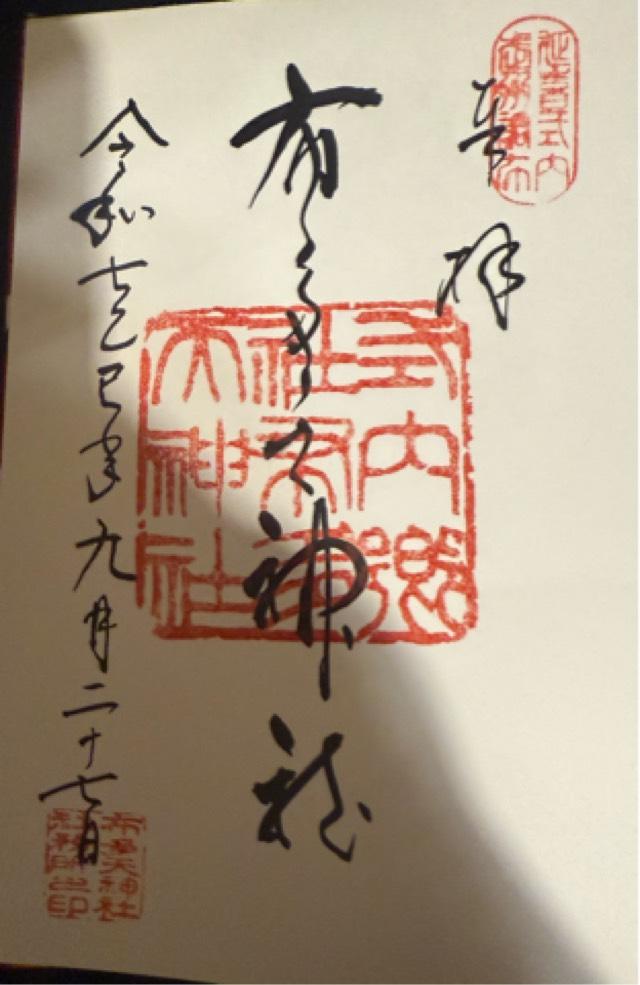 延喜式内
奉拝
布多天神社
式内郷
社布多
天神社
令和七乙巳年九月二十七日
布多天神社
社務所之印